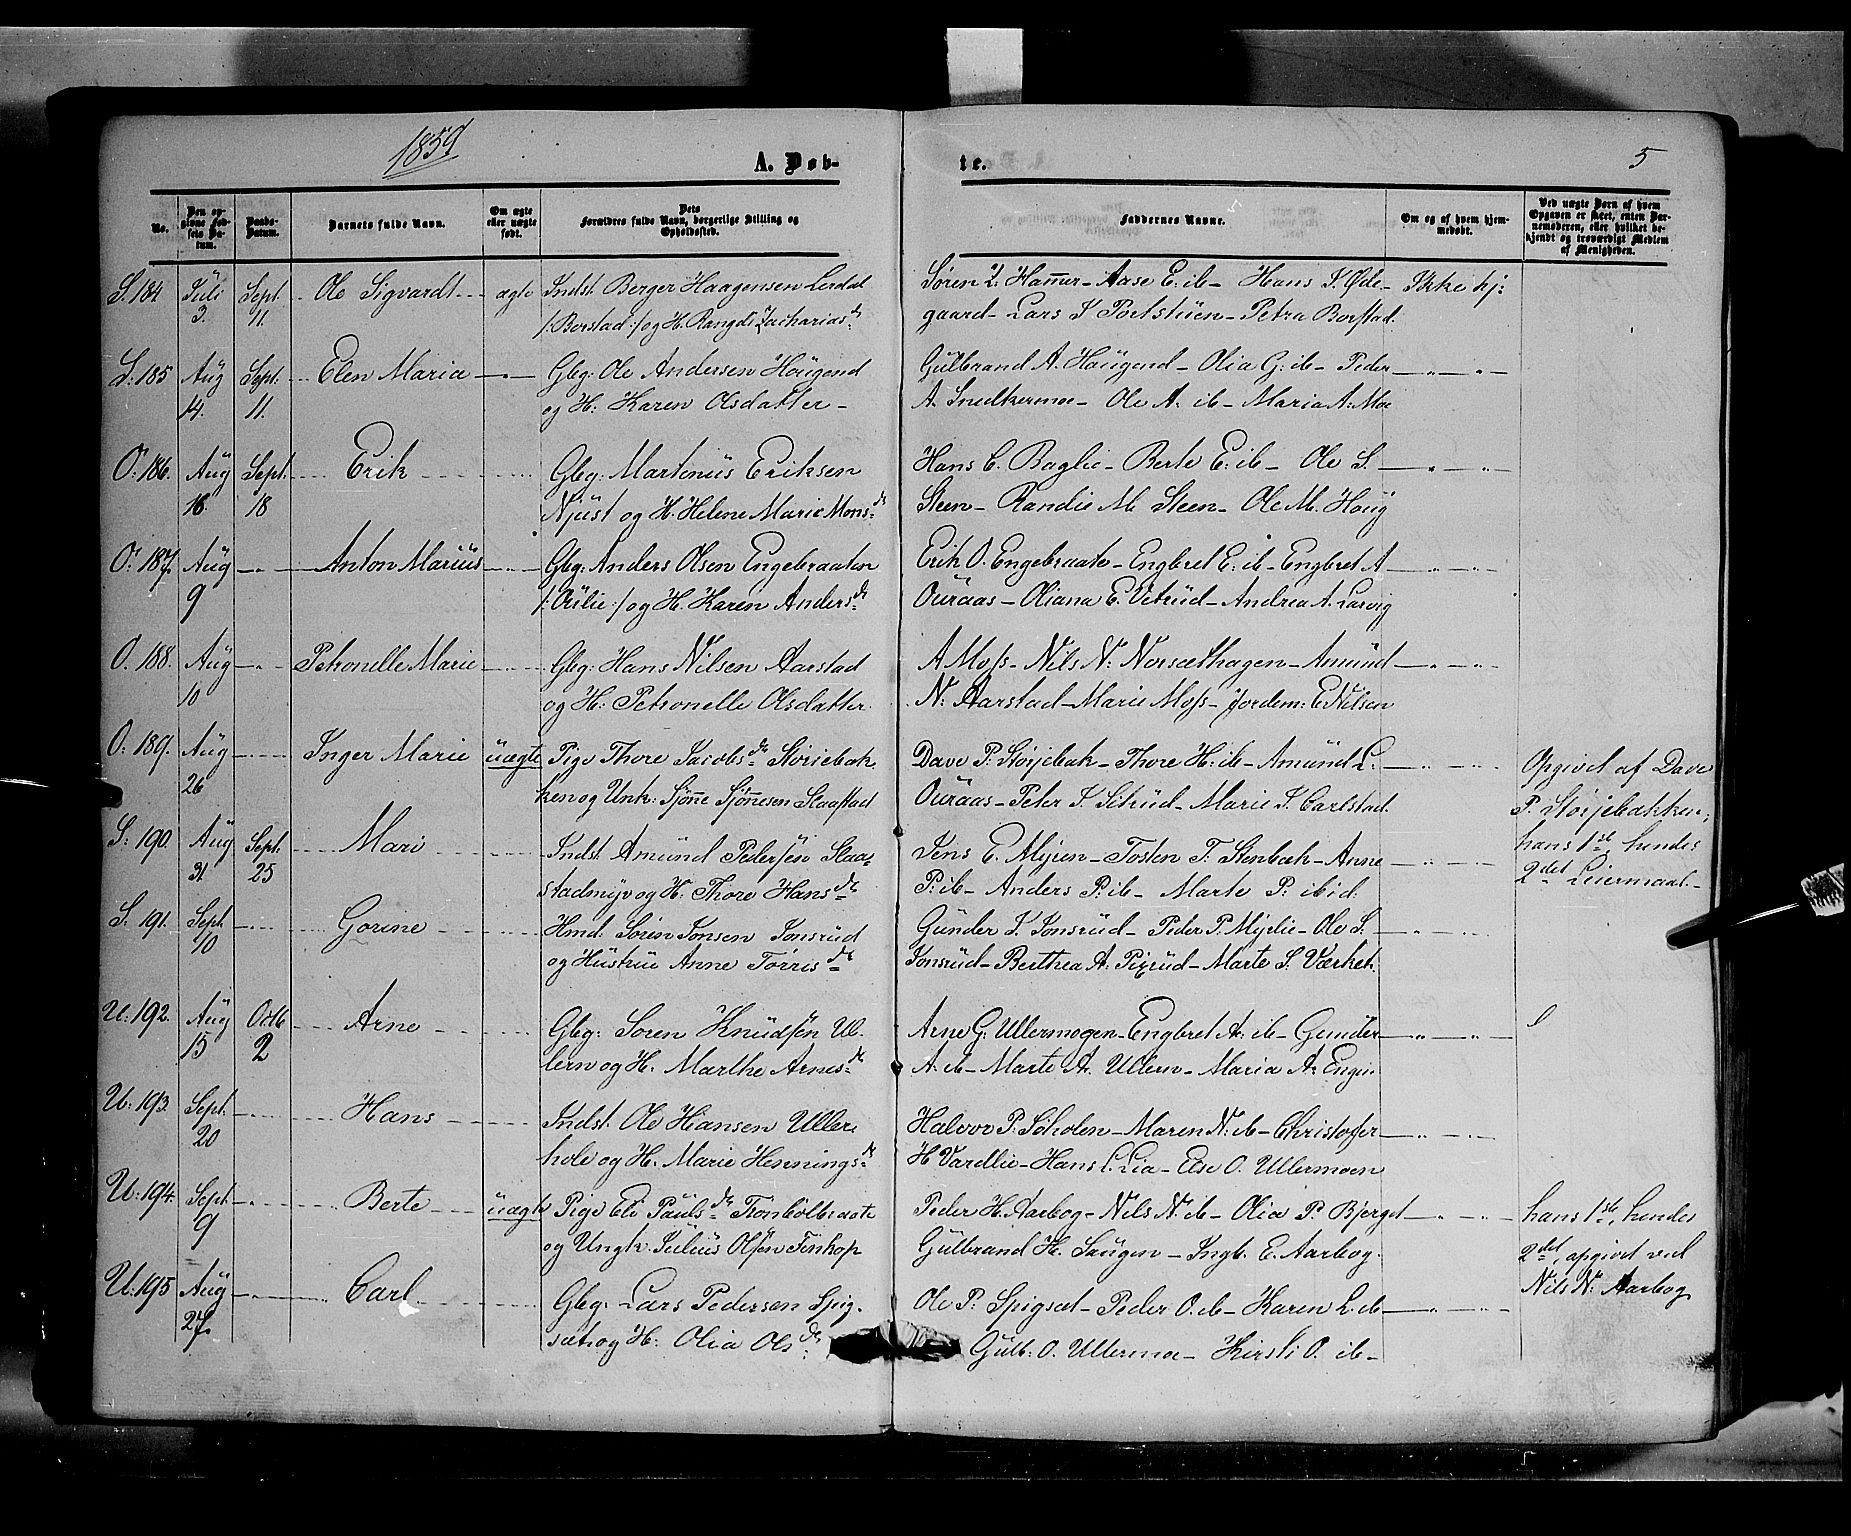 1859
A. Døb-
te.
5
No.
Den opgivne Fødsels Datum.
Daabs-Datum.
Barnets fulde Navn.
Om ægte eller uægte født.
Dets Forældres fulde Navn, borgerlige Stilling og Opholdssted.
Faddernes Navne.
Om og af hvem hjemmedøbt.
Ved uægte Børn af hvem Opgaven er skeet, enten Barnemoderen, eller hvilket bekjendt og troværdigt Medlem af Menigheden.
S. 184 Juli 3. Sept. 11. Ole Sigvardt ægte Indst. Berger Haagensen Lerdal
/: Borstad :/ og H. Rangdi Zacharias d.
Søren Z. Hammer - Aase E. ib - Hans J. Øde- Ikke hj:
gaard - Lars J Portstuen - Petra Borstad.
S. 185 Aug 14. Sept. 11. Elen Maria Gbg: Ole Andersen Haugend
og H: Karen Olsdatter -
Gulbrand A. Haugend - Olia G: ib - Peder
A. Snedkermoe - Ole A. ib - Maria A. Moe
O. 186. Aug 16. Sept. 18 Erik Gbg: Martinus Eriksen
Njust og H. Helene Marie Mons d.
Hans C. Baglie - Berte E. ib - Ole S.
Steen - Randie M. Steen - Ole M. Haug
O. 187. Aug 9 Anton Marius Gbg: Anders Olsen Engebraaten
/: :/ og H. Karen Anders d.
Erik O. Engebraate - Engbret E: ib - Engbret A
Ouraas - Oliana E. Vetrud - Andrea A. Larvig
O. 188. Aug 10 Petronelle Marie Gbg: Hans Nilsen Aarstad
og H: Petronelle Olsdatter.
A Moss - Nils N: Norsæthagen - Amund
N. Aarstad - Marie Moss - Jordem: E Nilsen
O: 189. Aug 26 Inger Marie uægte Pige Thore Jacobs d. Støriebak
ken og Unk: Sjønne Sjønnesen Slaastad
Dave P. Støjebak - Thore H: ib - Amund L.
Ouraas - Peter J. Setrud - Marie J. Carlstad
Opgivet af Dave
P. Støjebakken,
hans 1ste hendes
2det Leiermaal -
S: 190. Aug 31. Sept. 25 Mari Indst. Amund Pedersen Slaa=
stadmyr og H: Thore Hans d.
Jens E. Myren - Tosten T. Stenbæk - Anne
P: ib - Anders P. ib - Marte P. ibid.
S. 191. Sept. 10 Gorine Hmd. Søren Jonsen Jonsrud
og Hustru Anne Tørris d.
Gunder J. Jonsrud - Peder P. Myrlie - Ole S.
Jonsrud - Berthea A. - Marte S. Værket.
U: 192. Aug 15 Octb 2 Arne Gbg: Søren Knudsøn Ul-
lern og H. Marthe Arnes d.
Arne G. Ullermogen - Engbret A: ib - Gunder
A. ib - Marte A. Ullern - Maria A. Engen
U: 193. Sept. 20 Hans Indst. Ole Hansen Ullern
hole og H. Marie Hennings d.
Halvor P. Søholen - Maren N: ib - Christoffer
H Vardlie - Hans C. Lia - Else O. Ullermoen
U: 194. Sept. 9 Berte uægte Pige Eli Pauls d. Tronbølbraate
og Ungk. Julius Olsøn
Peder H. Aarbog - Nils N. ib - Olia P. Bjerget
Gulbrand H. Saugen - Ingb. E. Aarbog.
hans 1ste, hendes
2det, opgivet ved
Nils N: Aarbog
U: 195 Aug 27. Carl Gbg: Lars Pedersen Spig-
sæt og H: Olia Ols d.
Ole P: Spigsæt - Peder O. ib - Karen L. ib
Gulb: O. Ullermoe - Kirsti O. ib -